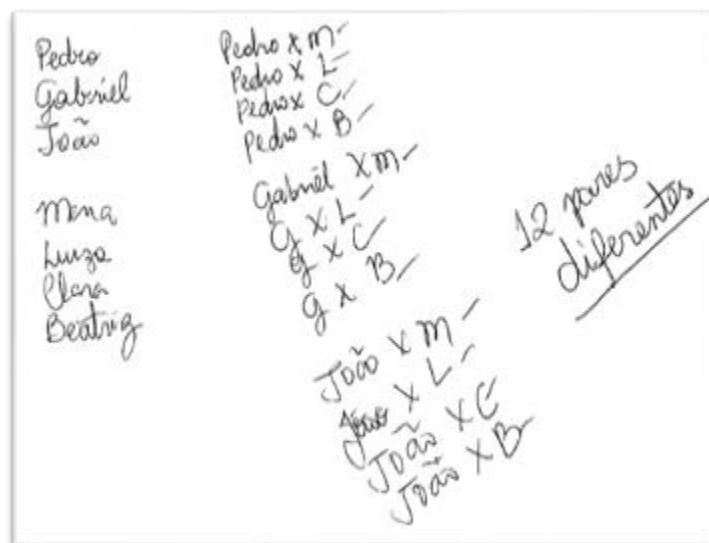 Pedro
Gabriel
João
Mena
Luiza
Clara
Beatriz
Pedro x M
Pedro x L
Pedro x C
Pedro x B
Gabriel x M
G x L
G x C
G x B
João x M
João x L
João x C
João x B
12 pares
diferentes